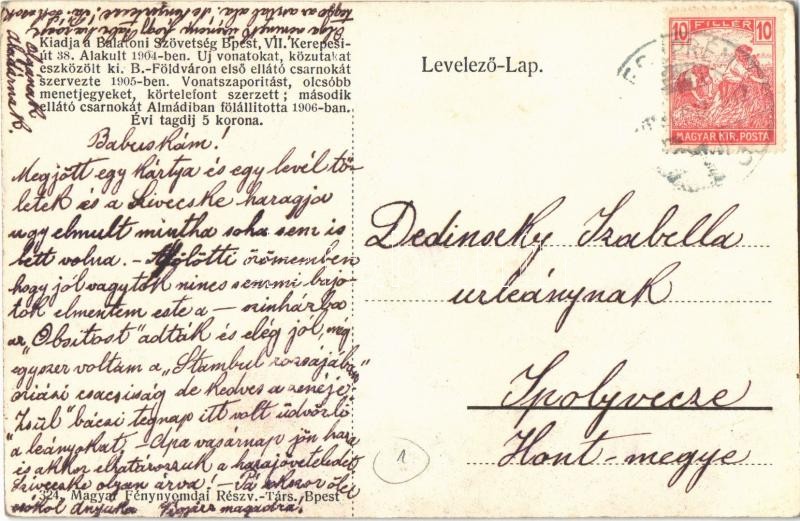 Kiadja a Balatoni Szövetség Bpest, VII. Kerepesi-
út 38. Alakult 1904-ben. Uj vonatokat, közutakat
eszközölt ki. B.-Földváron első ellátó csarnokát
szervezte 1905-ben. Vonatszaporitást, olcsóbb
menetjegyeket, körtelefont szerzett; második
ellátó csarnokát Almádiban fölállitotta 1906-ban.
Évi tagdij 5 korona.
Levelező-Lap.
10 FILLÉR 10
MAGYAR KIR. POSTA
Babuskám!
Megjött egy kártya és egy levél tő-
letek és a Szivecske haragja
ugy elmult mintha soha sem is
lett volna. - fölötti örömemben
hogy jól vagytok nincs semmi bajo-
tok elmentem este a - szinházba
az "Obsitost" adták és elég jól, még
egyszer voltam a "Stambul rózsájában
óriási csacsiság de kedves a zenéje.
"Zsül" bácsi tegnap itt volt üdvözlő
"a leányokat." - Apa vasárnap jön haza
és akkor elhatározzuk a hazajöveteledet
Szivecske olyan árva! - Pá sokszor ölel
csókol Anyuka Vigyázz magadra.
Dedinszky Izabella
urleánynak
Ipolyvecze
Hont-megye
1
324. Magyar Fénynyomdai Részv.-Társ. Bpest